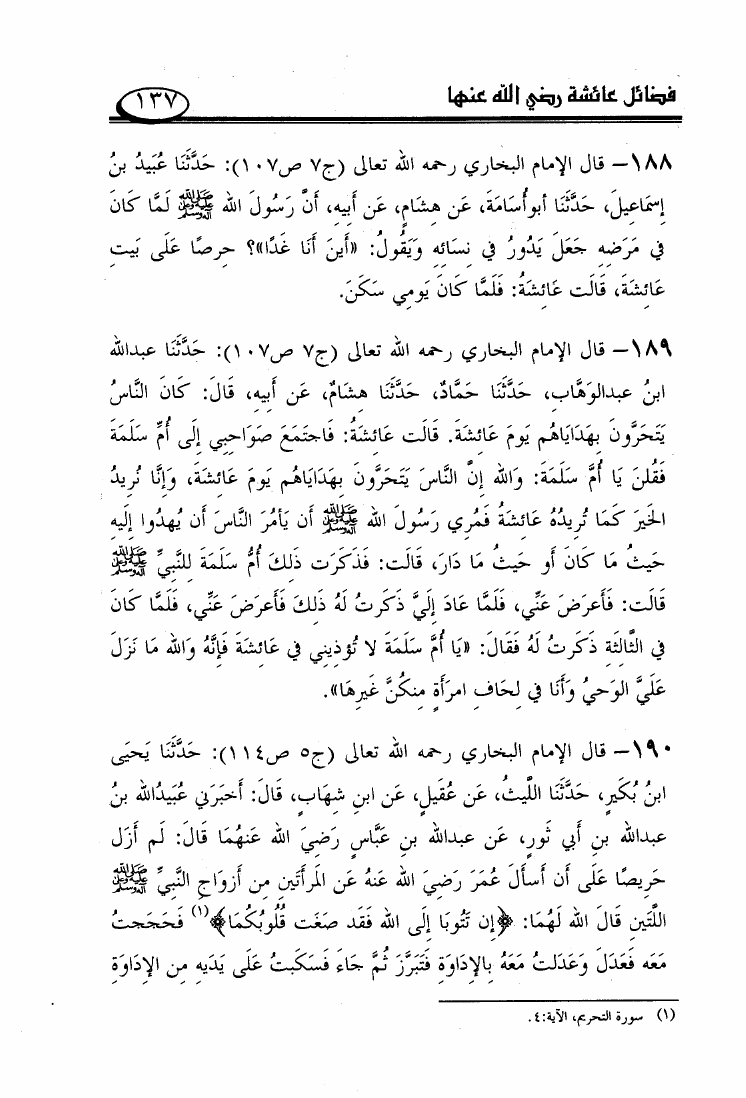 فضائل عائشة رضي الله عنها
١٣٧
١٨٨– قال الإمام البخاري رحمه الله تعالى (ج٧ ص١٠٧): حَدَّثَنَا عُبَيدُ بنُ
إِسمَاعِيلَ، حَدَّثَنَا أبوأُسَامَةَ، عَن هِشَامٍ، عَن أَبِيهِ، أَنَّ رَسُولَ الله ﷺ لَمَّا كَانَ
فِي مَرَضِهِ جَعَلَ يَدُورُ فِي نِسَائِهِ وَيَقُولُ: «أَينَ أَنَا غَدًا»؟ حِرصًا عَلَى بَيتِ
عَائِشَةَ، قَالَت عَائِشَةُ: فَلَمَّا كَانَ يَومِي سَكَنَ.
١٨٩– قال الإمام البخاري رحمه الله تعالى (ج٧ ص١٠٧): حَدَّثَنَا عبدالله
ابنُ عبدالوَهَّاب، حَدَّثَنَا حَمَّادٌ، حَدَّثَنَا هشَامٌ، عَن أَبِيهِ، قَالَ: كَانَ النَّاسُ
يَتَحَرَّونَ بِهَدَايَاهُم يَومَ عَائِشَةَ. قَالَت عَائِشَةُ: فَاجتَمَعَ صَوَاحِبِي إِلَى أُمِّ سَلَمَةَ
فَقُلنَ يَا أُمَّ سَلَمَةَ: وَالله إِنَّ النَّاسَ يَتَحَرَّونَ بِهَدَايَاهُم يَومَ عَائِشَةَ، وَإِنَّا نُرِيدُ
الخَيرَ كَمَا تُرِيدُهُ عَائِشَةُ فَمُرِي رَسُولَ الله ﷺ أَن يَأمُرَ النَّاسَ أَن يُهدُوا إِلَيهِ
حَيثُ مَا كَانَ أَو حَيثُ مَا دَارَ، قَالَت: فَذَكَرَت ذَلِكَ أُمُّ سَلَمَةَ لِلنَّبِيِّ ﷺ
قَالَت: فَأَعرَضَ عَنِّي، فَلَمَّا عَادَ إِلَيَّ ذَكَرتُ لَهُ ذَلِكَ فَأَعرَضَ عَنِّي، فَلَمَّا كَانَ
فِي الثَّالِثَةِ ذَكَرتُ لَهُ فَقَالَ: «يَا أُمَّ سَلَمَةَ لا تُؤذِينِي فِي عَائِشَةَ فَإِنَّهُ وَالله مَا نَزَلَ
عَلَيَّ الوَحيُ وَأَنَا فِي لِحَافِ امرَأَةٍ مِنكُنَّ غَيرِهَا».
١٩٠– قال الإمام البخاري رحمه الله تعالى (ج٥ ص١١٤): حَدَّثَنَا يَحيَى
ابنُ بُكَيرٍ، حَدَّثَنَا اللَّيثُ، عَن عُقَيلٍ، عَن ابنِ شِهَابٍ، قَالَ: أَخبَرَنِي عُبَيدُالله بنُ
عبدالله بنِ أَبِي ثَورٍ، عَن عبدالله بنِ عَبَّاسٍ رَضِيَ الله عَنهُمَا قَالَ: لَم أَزَل
حَرِيصًا عَلَى أَن أَسأَلَ عُمَرَ رَضِيَ الله عَنهُ عَن المَرأَتَينِ مِن أَزوَاجِ النَّبِيِّ ﷺ
اللَّتَينِ قَالَ الله لَهُمَا: ﴿إِن تَتُوبَا إِلَى الله فَقَد صَغَت قُلُوبُكُمَا﴾(١) فَحَجَجتُ
مَعَه فَعَدَلَ وَعَدَلتُ مَعَهُ بِالإِدَاوَةِ فَتَبَرَّزَ ثُمَّ جَاءَ فَسَكَبتُ عَلَى يَدَيهِ مِن الإِدَاوَةِ
(١) سورة التحريم، الآية:٤.